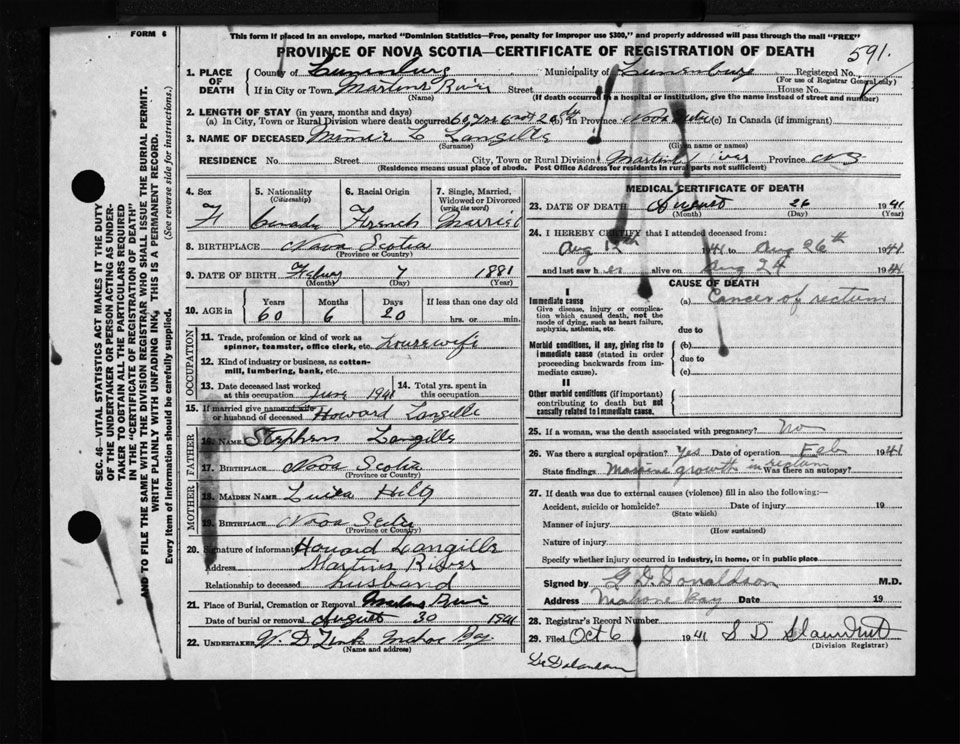 FORM 6
This form if placed in an envelope, marked "Dominion Statistics—Free, penalty for improper use $300," and properly addressed will pass through the mail "FREE"
PROVINCE OF NOVA SCOTIA—CERTIFICATE OF REGISTRATION OF DEATH
591
1. PLACE OF DEATH
County of Lunenburg Municipality of Lunenburg Registered No.
(For use of Registrar General only)
If in City or Town Martins River Street House No.
(Name) (If death occurred in a hospital or institution, give the name instead of street and number)
2. LENGTH OF STAY (in years, months and days)
(a) In City, Town or Rural Division where death occurred 60 yrs 6 (b) In Province Nova Scotia (c) In Canada (if immigrant)
3. NAME OF DECEASED Minnie C Langille
(Surname) (Given name or names)
RESIDENCE No. Street City, Town or Rural Division Martins River Province N.S.
(Residence means usual place of abode. Post Office Address for residents in rural parts not sufficient)
4. Sex F
5. Nationality (Citizenship) Canada
6. Racial Origin French
7. Single, Married, Widowed or Divorced (write the word) Married
8. BIRTHPLACE Nova Scotia
(Province or Country)
9. DATE OF BIRTH 7 1881
(Month) (Day) (Year)
10. AGE in Years 60 Months 6 Days 20 If less than one day old hrs. or min.
OCCUPATION
11. Trade, profession or kind of work as spinner, teamster, office clerk, etc. Housewife
12. Kind of industry or business, as cotton-mill, lumbering, bank, etc.
13. Date deceased last worked at this occupation June 1941
14. Total yrs. spent in this occupation
15. If married give name of wife or husband of deceased Howard Langille
FATHER
16. NAME Stephen Langille
17. BIRTHPLACE Nova Scotia
MOTHER
18. MAIDEN NAME Hiltz
19. BIRTHPLACE Nova Scotia
(Province or Country)
20. Signature of informant Howard Langille
Address Martins River
Relationship to deceased husband
21. Place of Burial, Cremation or Removal
Date of burial or removal August 30 1941
22. UNDERTAKER W. D. Mahone Bay
(Name and address)
MEDICAL CERTIFICATE OF DEATH
23. DATE OF DEATH August 26 1941
(Month) (Day) (Year)
24. I HEREBY CERTIFY that I attended deceased from:
Aug 1941 to Aug 26th 1941
and last saw her alive on Aug 24 1941
CAUSE OF DEATH
I
Immediate cause
Give disease, injury or complication which caused death, not the mode of dying, such as heart failure, asphyxia, asthenia, etc.
(a) Cancer of rectum
due to
Morbid conditions, if any, giving rise to immediate cause (stated in order proceeding backwards from immediate cause).
(b)
due to
(c)
II
Other morbid conditions (if important) contributing to death but not causally related to immediate cause.
25. If a woman, was the death associated with pregnancy? No
26. Was there a surgical operation? Yes Date of operation Feb 1941
State findings growth in Was there an autopsy?
27. If death was due to external causes (violence) fill in also the following:—
Accident, suicide or homicide? Date of injury 19
(State which)
Manner of injury
(How sustained)
Nature of injury
Specify whether injury occurred in industry, in home, or in public place
Signed by G D Donaldson M.D.
Address Mahone Bay Date 19
28. Registrar's Record Number
29. Filed Oct 6 1941 S D
(Division Registrar)
SEC. 46—VITAL STATISTICS ACT MAKES IT THE DUTY
OF THE UNDERTAKER OR PERSON ACTING AS UNDER-
TAKER TO OBTAIN ALL THE PARTICULARS REQUIRED
IN THE "CERTIFICATE OF REGISTRATION OF DEATH"
AND TO FILE THE SAME WITH THE DIVISION REGISTRAR WHO SHALL ISSUE THE BURIAL PERMIT.
WRITE PLAINLY WITH UNFADING INK, THIS IS A PERMANENT RECORD.
Every item of Information should be carefully supplied. (See reverse side for instructions.)